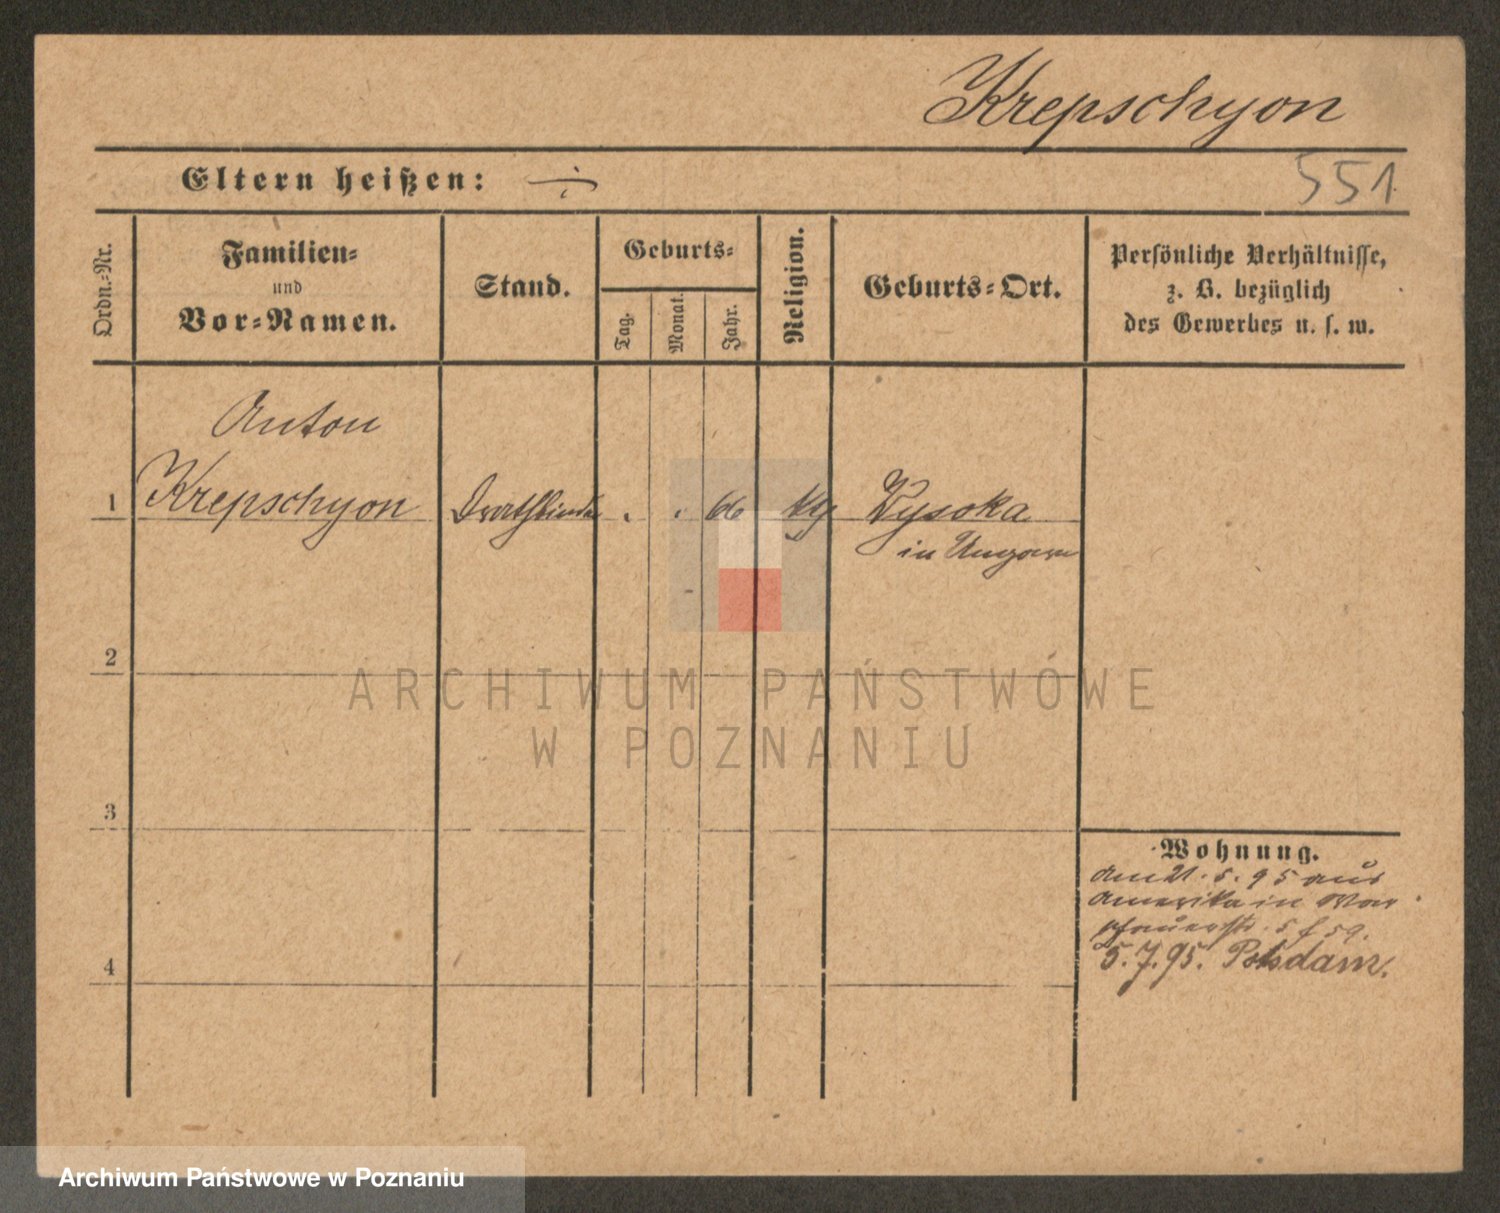 Krepschyon
Eltern heißen: ÷
551
Ordn.-Nr.
Familien-
und
Vor-Namen.
Stand.
Geburts-
Tag.
Monat.
Jahr.
Religion.
Geburts-Ort.
Persönliche Verhältnisse,
z. B. bezüglich
des Gewerbes u. s. w.
Anton
1 Krepschyon Drathbinder . . 66 Wysoka
in Ungarn
2
3
4
Wohnung.
am 21. 5. 95 aus
Amerika in War
schauerstr. 5 f 59.
5. 7. 95. Potsdam.
ARCHIWUM PAŃSTWOWE
W POZNANIU
Archiwum Państwowe w Poznaniu